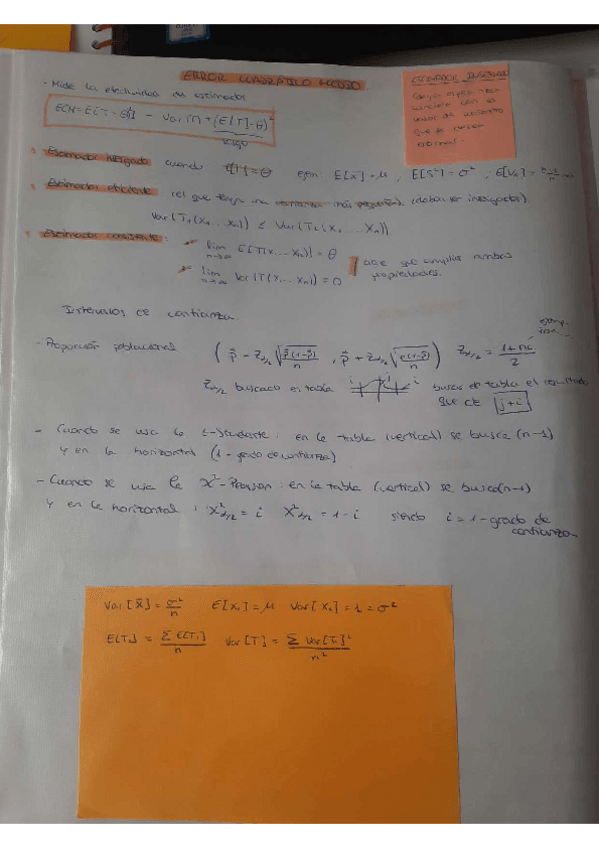 ERROR CUADRÁTICO MEDIO
- Mide la efectividad del estimador
ECM = E[T - θ]² = Var(T) + (E[T] - θ)²
sesgo
ESTIMADOR INSESGADO
valor
que
normal.
Estimador insesgado cuando E[T] = θ ejm: E[x̄] = μ, E[S²] = σ²,
Estimador eficiente (el que tenga una varianza más pequeña). (deben ser insesgados).
Var(T₁(x₁...xₙ)) ≤ Var(T₂(x₁...xₙ))
Estimador consistente:
lim n→∞ E[T(x₁...xₙ)] = θ
lim n→∞ Var(T(x₁...xₙ)) = 0
que cumplir ambas
propiedades.
Intervalos de confianza
- Proporción poblacional (p̂ - Z α/2 √(p̂(1-p̂)/n), p̂ + Z α/2 √(p̂(1-p̂)/n)) Z α/2 = (1+nc)/2
Z α/2 buscado en tabla i i buscas en tabla el resultado
que de j+i
- Cuando se usa la t-Studente: en la tabla (vertical) se busca (n-1)
y en la horizontal (1 - grado de confianza)
- Cuando se usa la X²-Pearson: en la tabla (vertical) se busca (n-1)
y en la horizontal: X² α/2 = i X² α/2 = 1 - i siendo i = 1 - grado de
confianza
Var[x̄] = σ²/n E[x₁] = μ Var[x₁] = 1 = σ²
E[T₁] = Σ E[T₁]/n Var[T] = Σ Var[T₁]²/n²